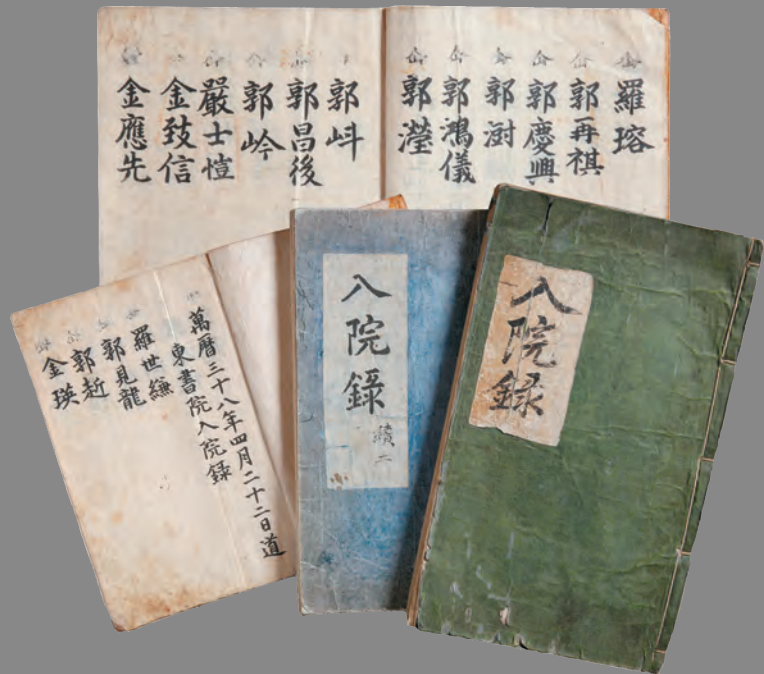 羅瑢
郭再祺
郭慶興
郭澍
郭鴻儀
郭瀅
郭㞳
郭昌後
嚴士愷
金致信
金應先
萬曆三十八年四月二十二日道
東書院入院錄
羅世縑
郭見龍
郭赾
金瑛
入院錄
續二
入院錄